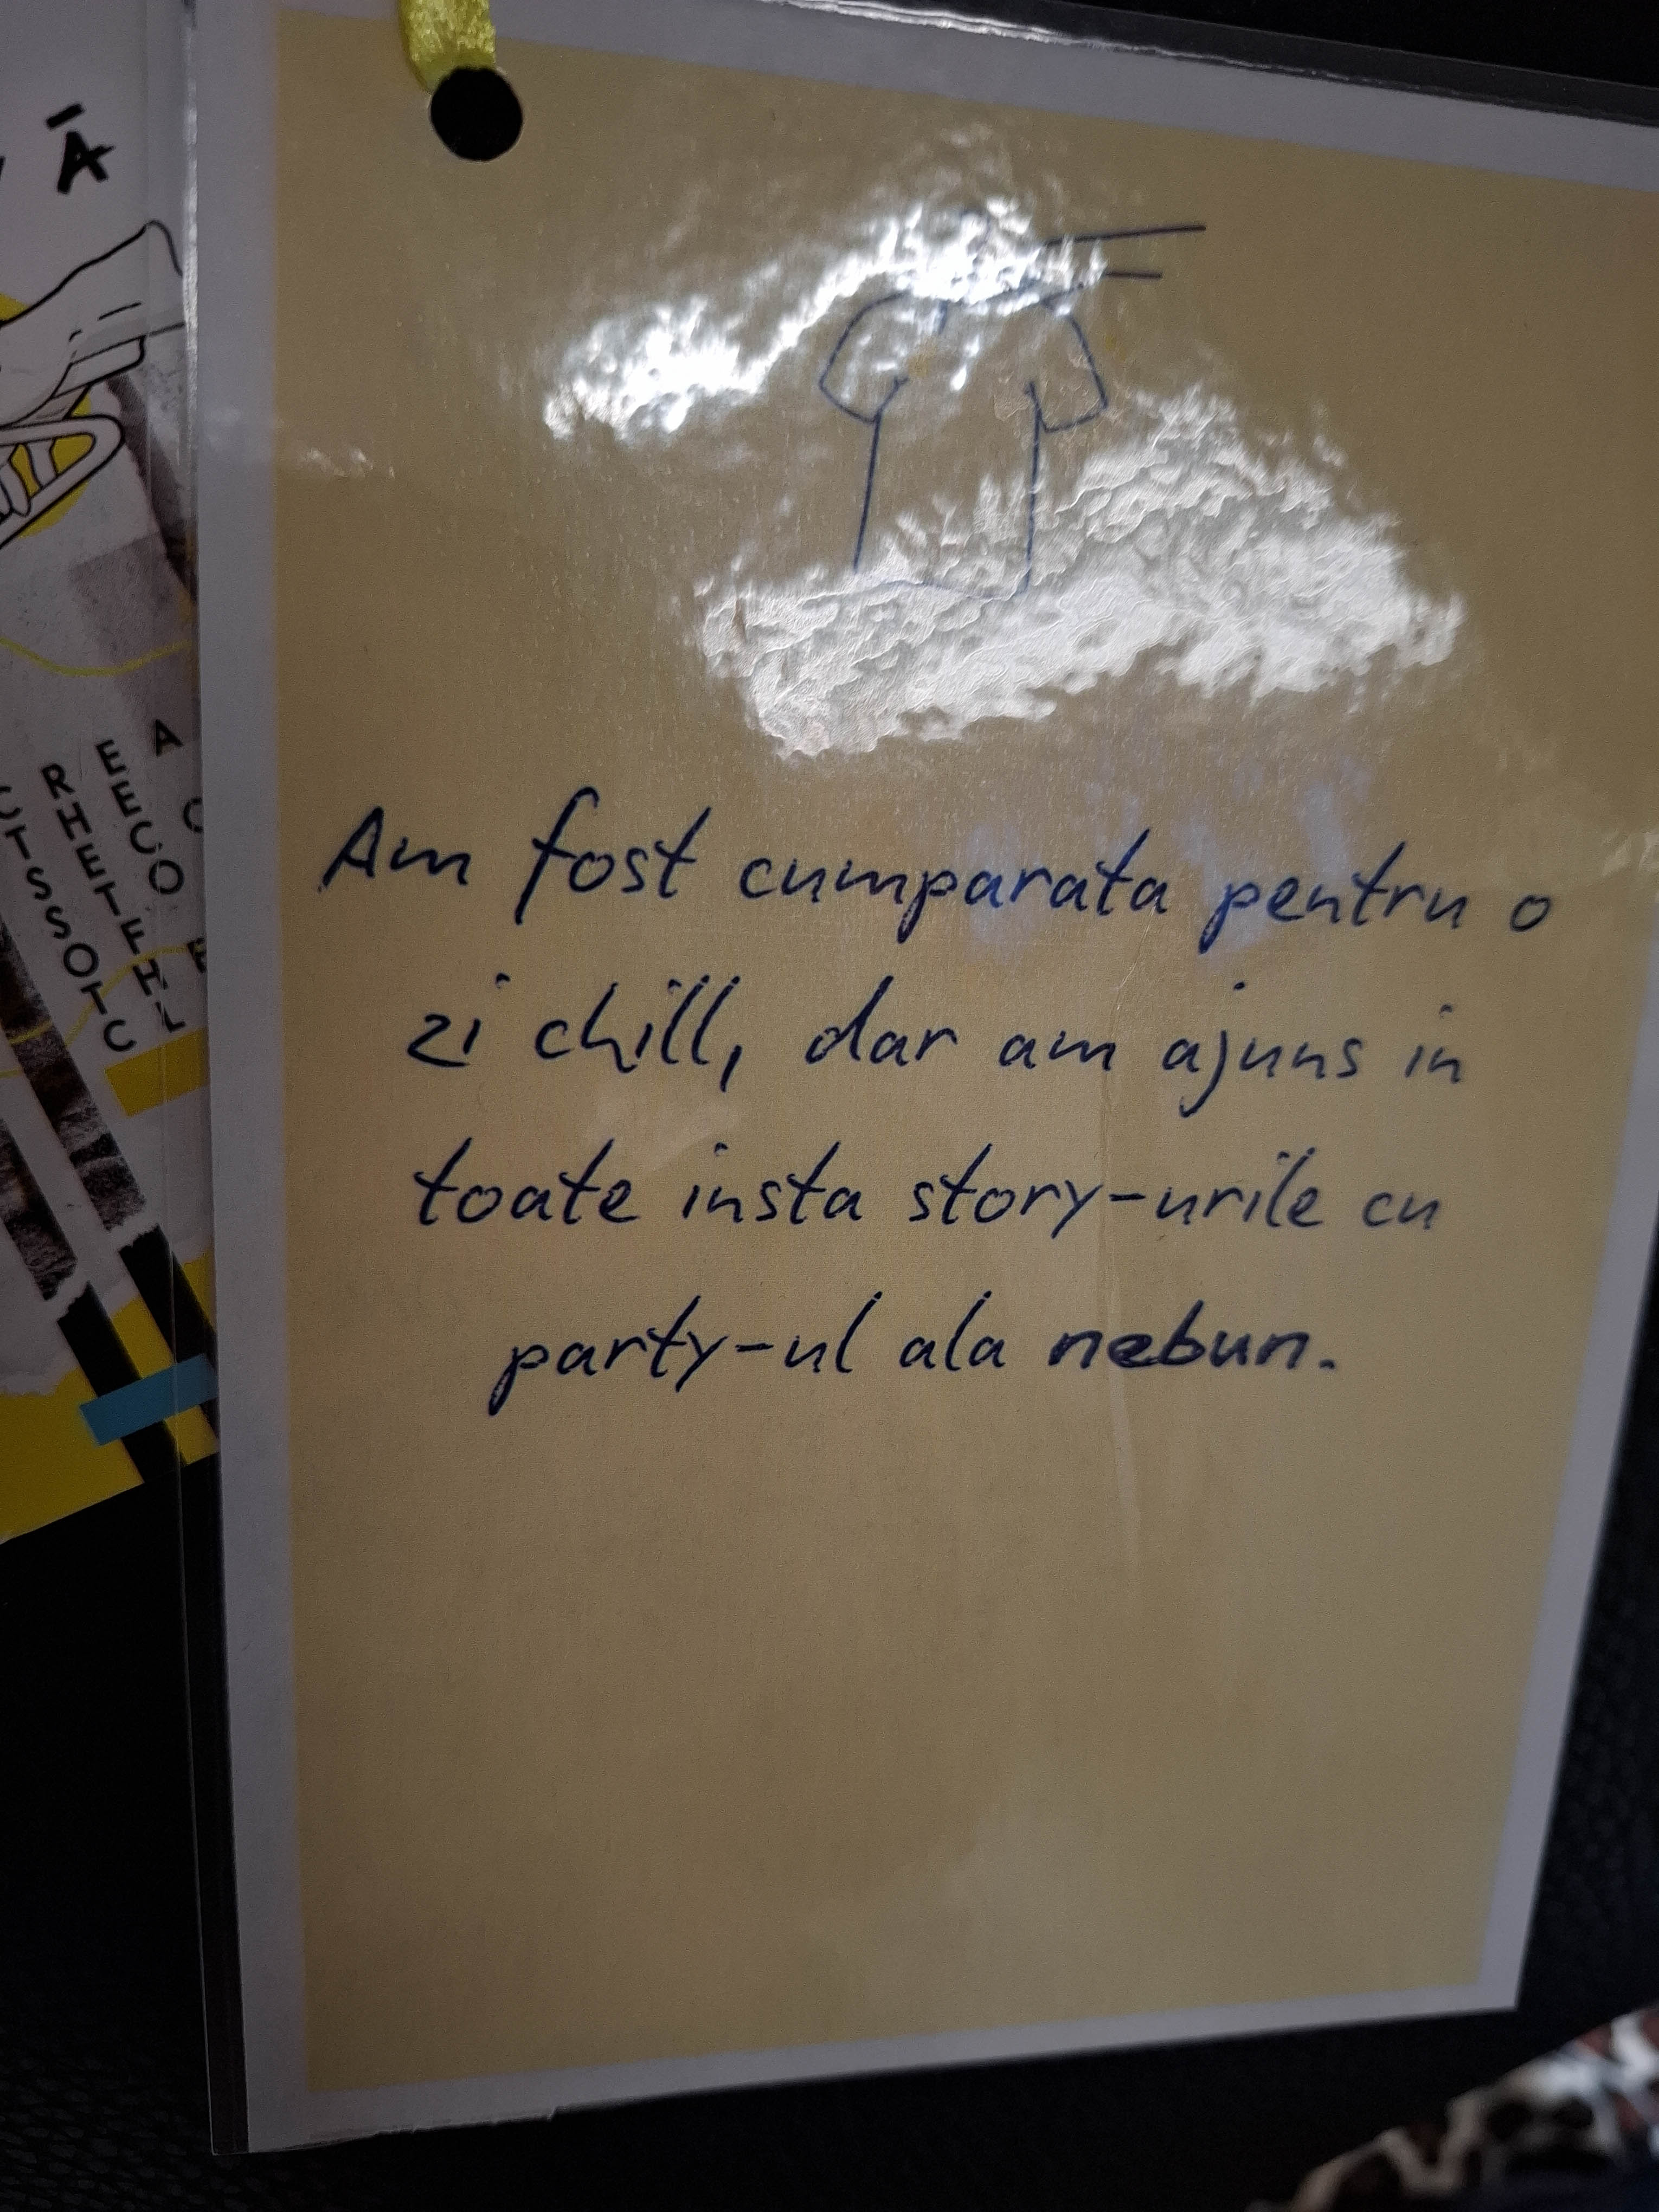 Ā
Am fost cumparata pentru o
zi chill, dar am ajuns in
toate insta story-urile cu
party-ul ala nebun.